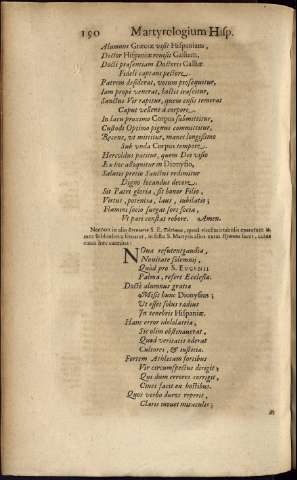 190 Martyrologium Hisp.
Alumnus Græciæ visit Hispaniam,
Doctor Hispaniæ revisit Galliam,
Docti præsentiam Doctores Galliæ
Fideli captant pectore.
Patrem desiderat, votum prosequitur,
Iam propè venerat, hostis insequitur,
Sanctus Vir rapitur, quem ensis temerat
Caput vellens à corpore.
In lacu proximo Corpus submittitur,
Custodi Optimo pignus committitur,
Recens, ut mittitur, manet longissimo
Sub unda Corpus tempore.
Hercoldus patitur, quem Dei visio
Ex hoc alloquitur in Dionysio,
Salutis pretio Sanctus redimitur
Digno locandus decore.
Sit Patri gloria, sit honor Filio,
Virtus, potentia, laus, iubilatio;
Flamini socio surgat sors socia,
Ut pari constat robore. Amen.
in alio Breviario S. E.
in festo S. Martyris alius
canit hoc carmine:
NOva refutent gaudia,
Novitate solemni,
Quid pro S. EUGENII
Palma, refert Ecclesia.
Docti alumnus gratia
Misit hunc Dionysium;
Ut esset solus radius
In tenebris Hispaniæ.
Hanc error idololatria,
Sic olim obtenebrerat,
Quod veritatis oderat
Cultores, & iustitia.
Fortem Athletam fortibus
Vir circumspectus dirigit;
Qui dum errores corrigit,
Cives facit ex hostibus.
Quos verbo duros reperit,
Claris movet miraculis;